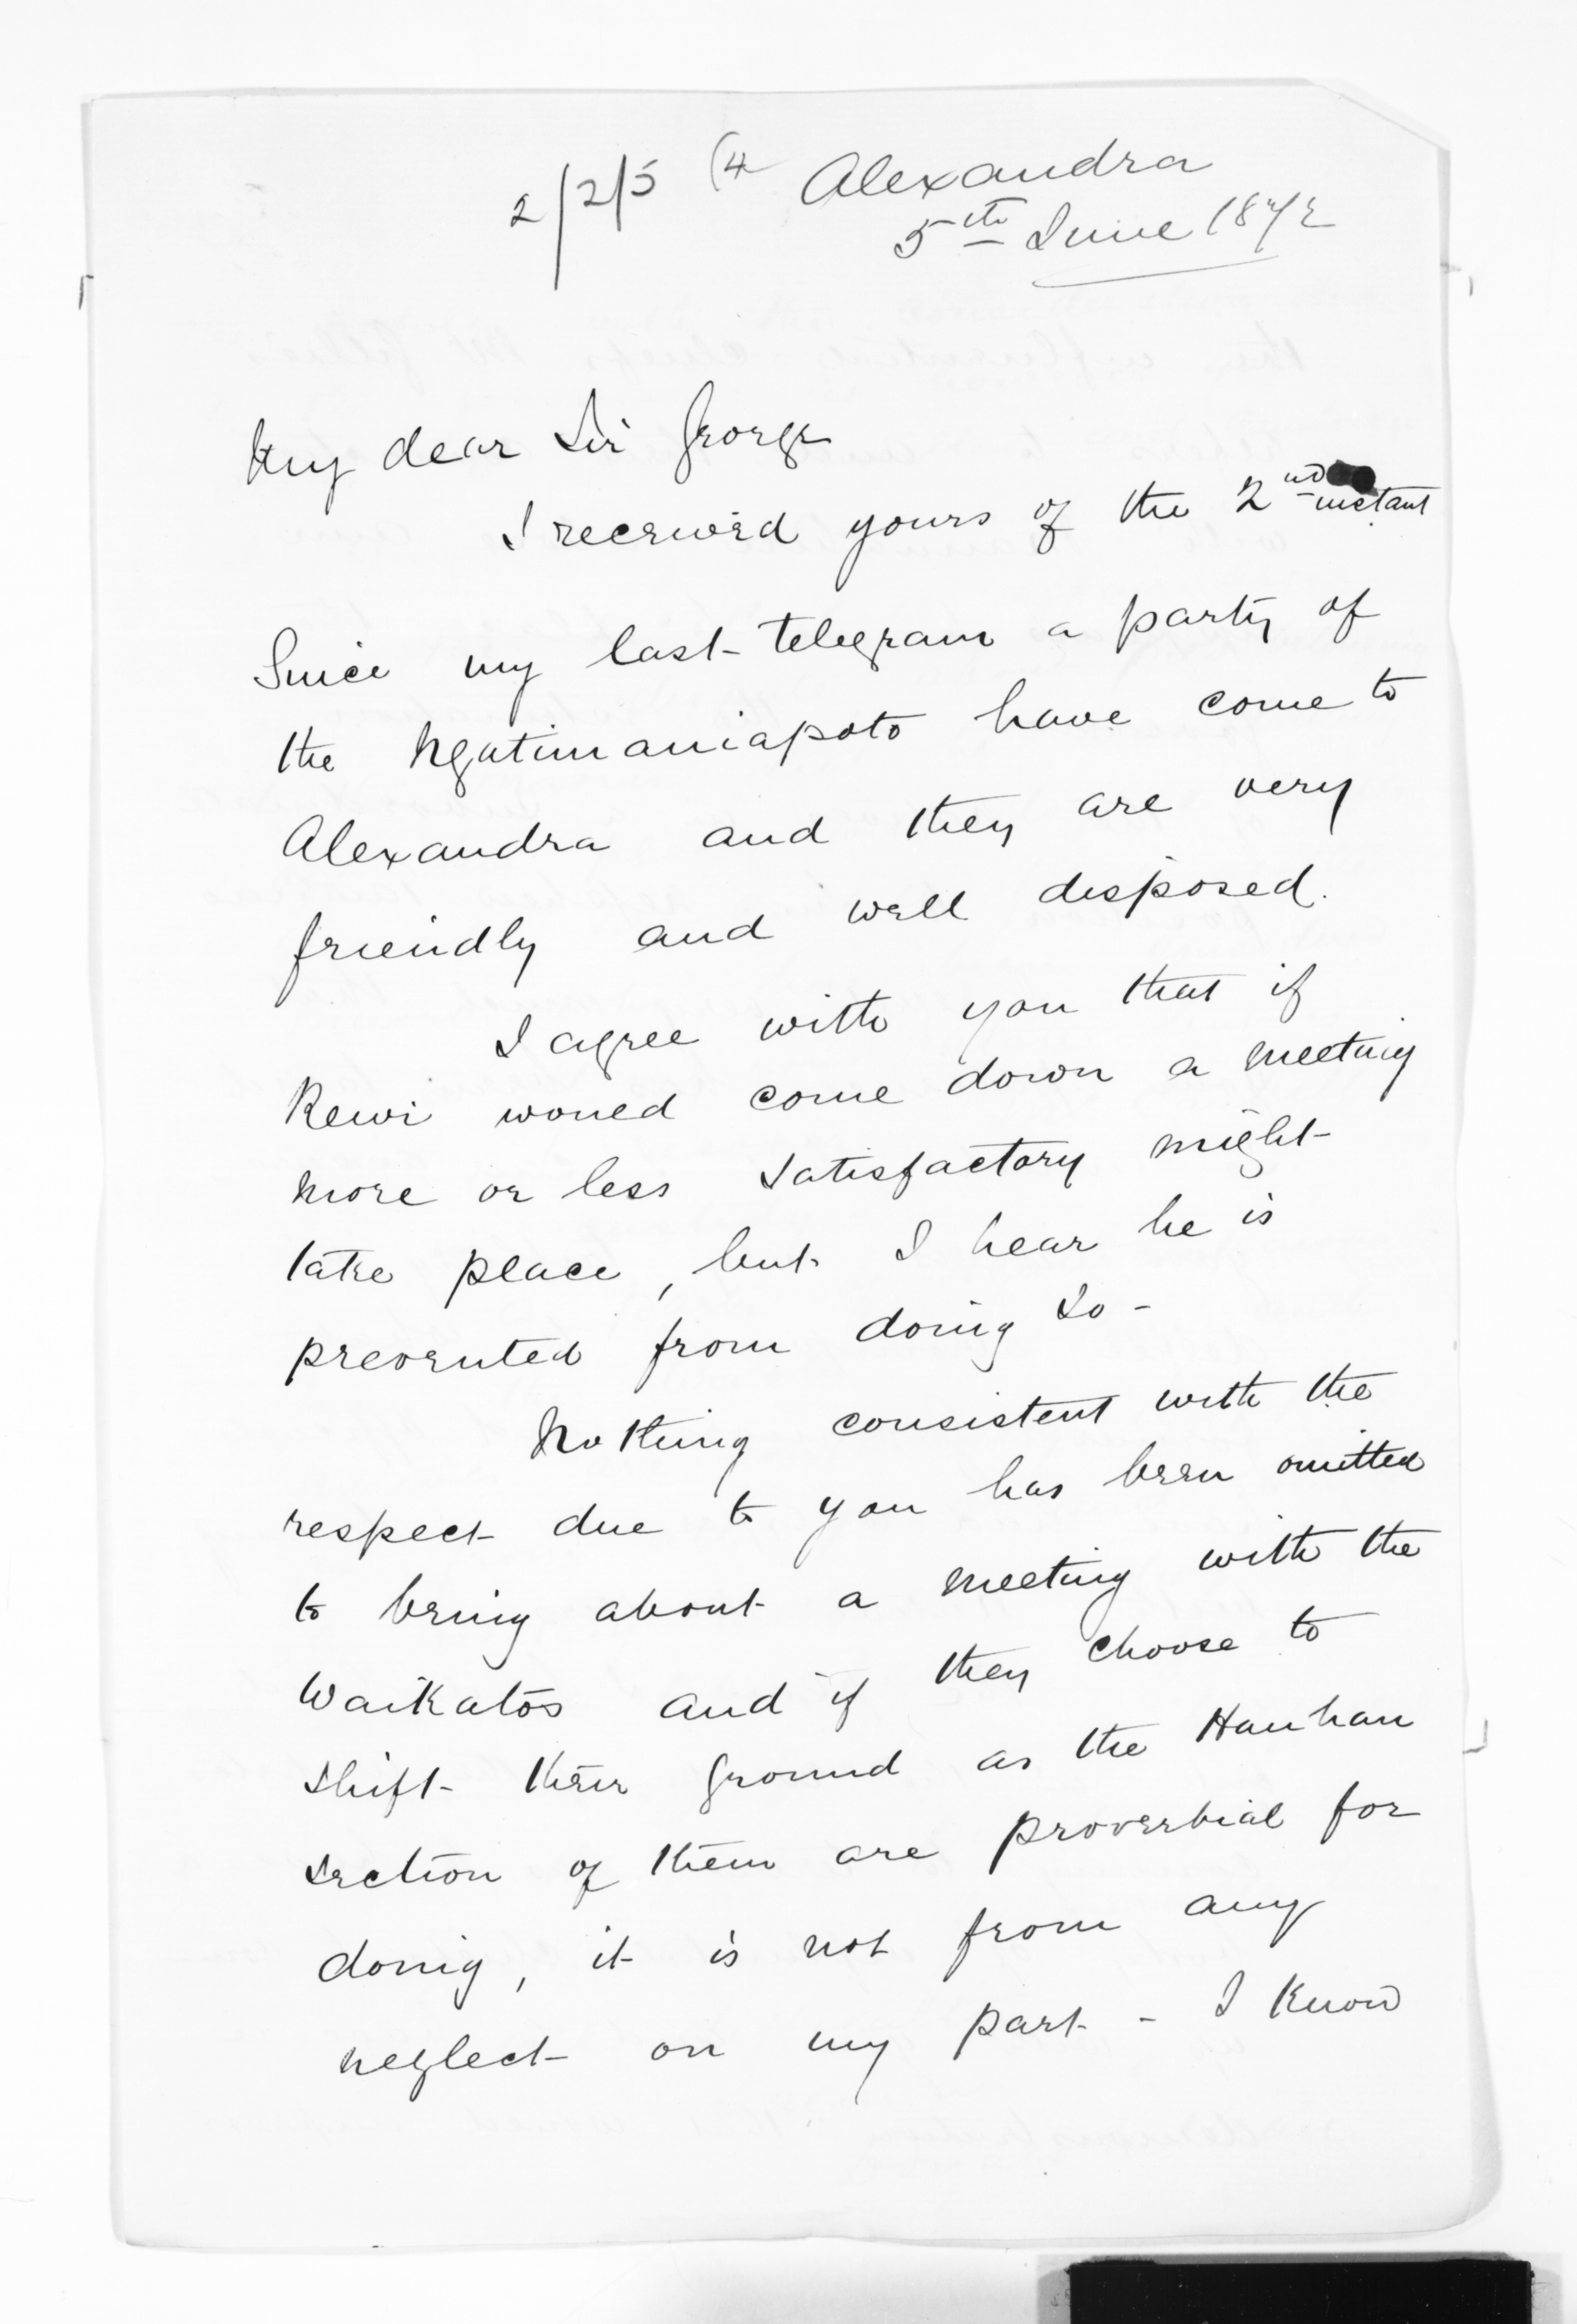 2/2/5 (4
Alexandra
5th June 1872
My dear Sir George
I received yours of the 2nd instant
Since my last telegram a party of
the Ngatimaniapoto have come to
Alexandra and they are very
friendly and well disposed.
I agree with you that if
Rewi would come down a meeting
more or less satisfactory might
take place, but I hear he is
prevented from doing so -
Nothing consistent with the
respect due to you has been omitted
to bring about a meeting with the
Waikatos and if they choose to
shift their ground as the Hauhau
section of them are proverbial for
doing, it is not from any
neglect on my part - I know